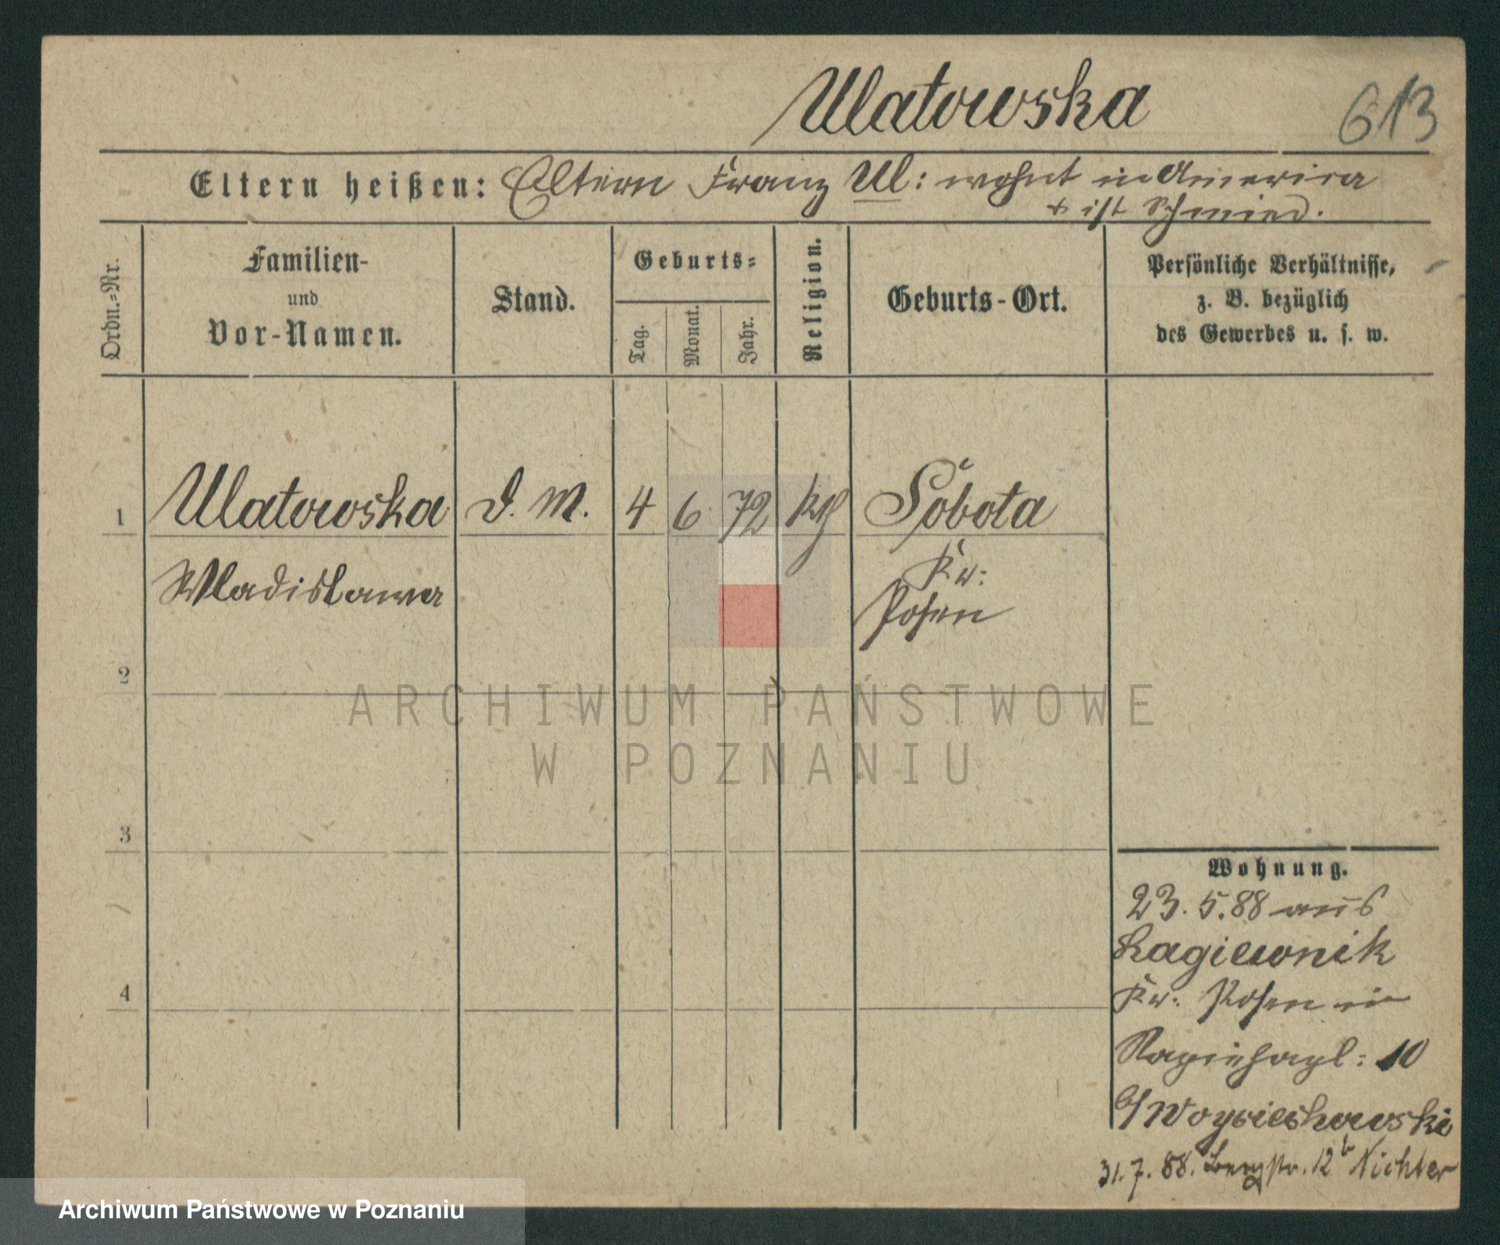 Ulatowska 613
Eltern heißen: Eltern Franz Ul: wohnt in Amerika
& ist Schmied.
Ordn.-Nr.
Familien-
und
Vor-Namen.
Stand.
Geburts-
Tag.
Monat.
Jahr.
Religion.
Geburts-Ort.
Persönliche Verhältnisse,
z. B. bezüglich
des Gewerbes u. s. w.
1 Ulatowska D. M. 4 6 72 Sobota
Wladislawa Kr:
Posen
2
3
4
Wohnung.
23.5.88 aus
Lagiewnik
Kr: Posen in
10
31.7.88. Bergstr. 12b Richter
ARCHIWUM PAŃSTWOWE
W POZNANIU
Archiwum Państwowe w Poznaniu